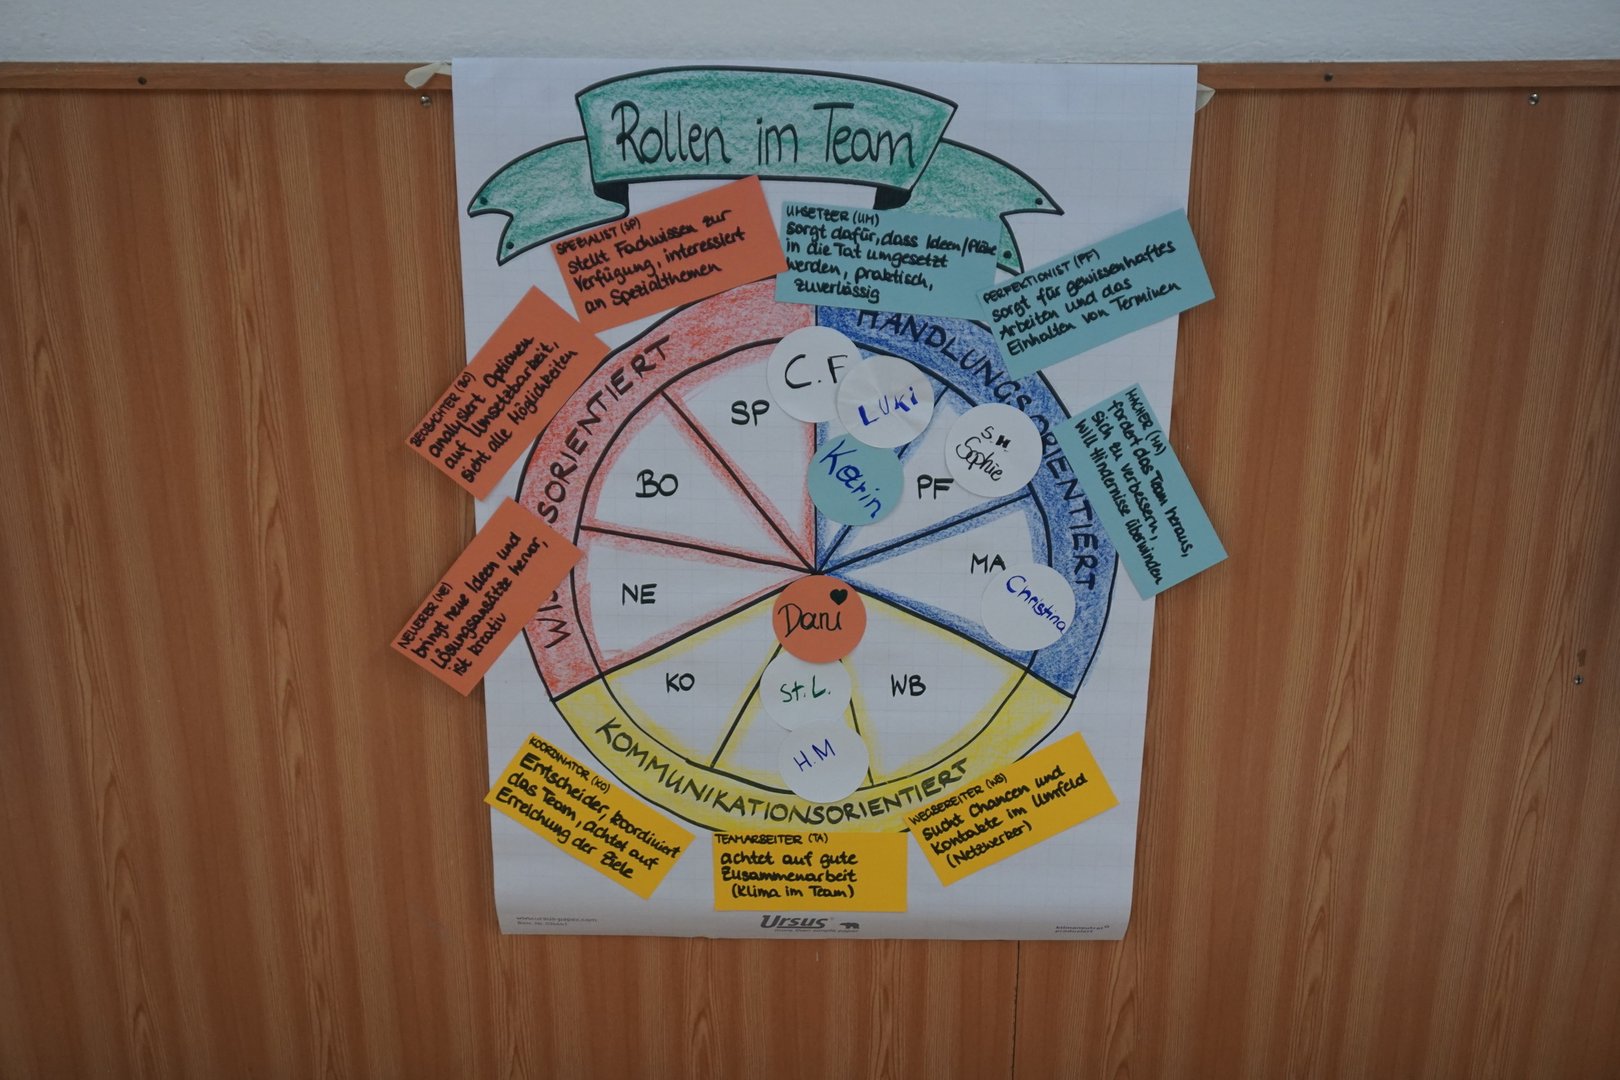 Rollen im Team
SPEZIALIST (SP)
stellt Fachwissen zur
Verfügung, interessiert
an Spezialthemen
UMSETZER (UM)
sorgt dafür, dass Ideen/Pläne
in die Tat umgesetzt
werden, praktisch,
zuverlässig
PERFEKTIONIST (PF)
sorgt für gewissenhaftes
Arbeiten und das
Einhalten von Terminen
MACHER (MA)
fordert das Team heraus,
sich zu verbessern,
will Hindernisse überwinden
BEOBACHTER (BO)
analysiert Optionen
auf Umsetzbarkeit,
sieht alle Möglichkeiten
NEUERER (NE)
bringt neue Ideen und
Lösungsansätze hervor,
ist kreativ
WIS SORIENTIERT
HANDLUNGSORIENTIERT
SP
C.F
LUKi
Karin
S.W.
Sophie
BO
PF
NE
MA
Christina
Dani
KO
St. L.
WB
H.M
KOMMUNIKATIONSORIENTIERT
KOORDINATOR (KO)
Entscheider, koordiniert
das Team, achtet auf
Erreichung der Ziele
TEAMARBEITER (TA)
achtet auf gute
Zusammenarbeit
(Klima im Team)
WEGBEREITER (WB)
sucht Chancen und
Kontakte im Umfeld
(Netzwerker)
www.ursus-paper.com
Ursus
more than simple paper
klimaneutral
produziert